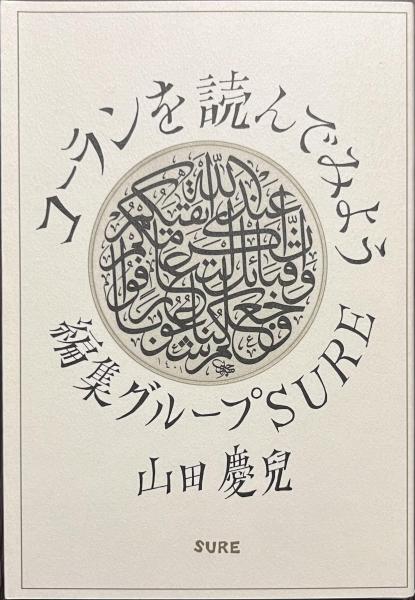 コーランを読んでみよう
وجعلناكم شعوبا وقبائل لتعارفوا إن أكرمكم عند الله أتقيكم
編集グループSURE
山田慶兒
SURE